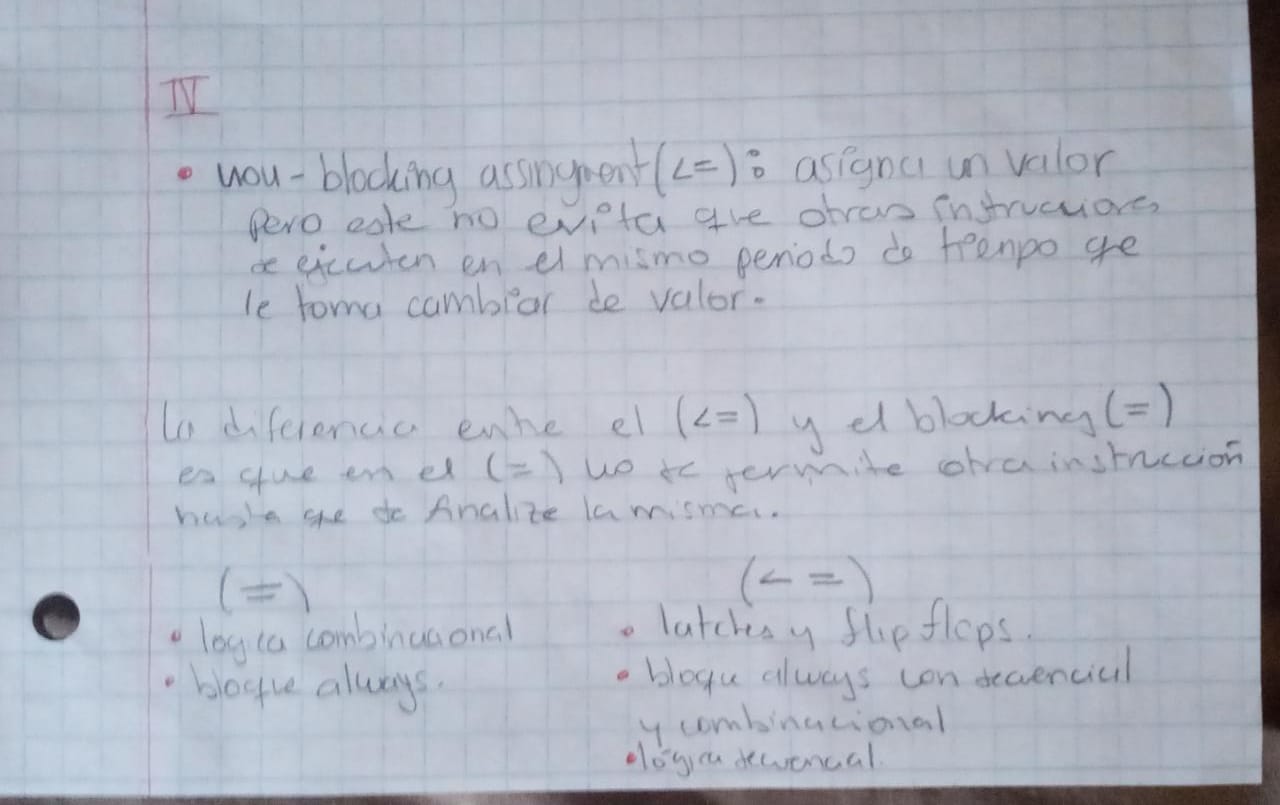 IV
• non-blocking assingment (<=): asigna un valor
pero este no evita que otras instrucciones
se ejecuten en el mismo periodo de tiempo que
le toma cambiar de valor.
La diferencia entre el (<=) y el blocking (=)
es que en el (=) no se permite otra instrucción
hasta que se finalize la misma.
(=)
• logica combinacional
• bloque always.
(<=)
• latches y flip flops.
• bloque always con secuencial
y combinacional
• lógica secuencial.